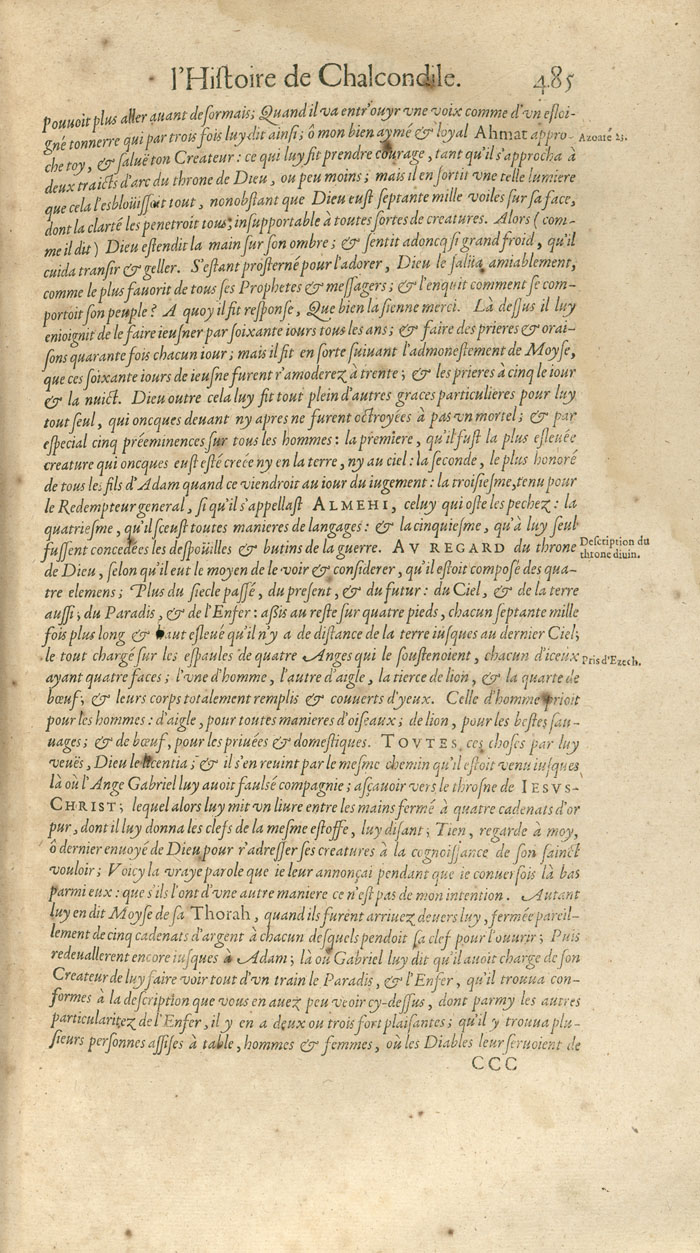 l'Hiſtoire de Chalcondile. 485
pouuoit plus aller auant deſormais; Quand il va entr'ouyr vne voix comme d'vn eſloi-
gné tonnerre qui par trois fois luy dit ainſi; ô mon bien aymé & loyal Ahmat appro-
Azoare 25.
che toy, & ſaluë ton Createur: ce qui luy fit prendre courage, tant qu'il s'approcha à
deux traicts d'arc du throne de Dieu, ou peu moins; mais il en ſortit vne telle lumiere
que cela l'esbloüiſſoit tout, nonobſtant que Dieu euſt ſeptante mille voiles ſur ſa face,
dont la clarté les penetroit tous; inſupportable à toutes ſortes de creatures. Alors (com-
me il dit) Dieu eſtendit la main ſur ſon ombre; & ſentit adoncq ſi grand froid, qu'il
cuida tranſir & geller. S'eſtant proſterné pour l'adorer, Dieu le ſalüa amiablement,
comme le plus fauorit de tous ſes Prophetes & meſſagers; & l'enquit comment ſe com-
portoit ſon peuple? A quoy il fit reſponſe, Que bien la ſienne merci. Là deſſus il luy
enioignit de le faire ieuſner par ſoixante iours tous les ans; & faire des prieres & orai-
ſons quarante fois chacun iour; mais il fit en ſorte ſuiuant l'admoneſtement de Moyſe,
que ces ſoixante iours de ieuſne furent r'amoderez à trente; & les prieres à cinq le iour
& la nuict. Dieu outre cela luy fit tout plein d'autres graces particulieres pour luy
tout ſeul, qui oncques deuant ny apres ne furent octroyées à pas vn mortel; & par
eſpecial cinq prééminences ſur tous les hommes: la premiere, qu'il fuſt la plus eſleuée
creature qui oncques euſt eſté creée ny en la terre, ny au ciel: la ſeconde, le plus honoré
de tous les fils d'Adam quand ce viendroit au iour du iugement: la troiſieſme, tenu pour
le Redempteur general, ſi qu'il s'appellaſt ALMEHI, celuy qui oſte les pechez: la
quatrieſme, qu'il ſceuſt toutes manieres de langages: & la cinquieſme, qu'à luy ſeul
fuſſent concedées les deſpoüilles & butins de la guerre. AV REGARD du throne
Deſcription du
throne diuin.
de Dieu, ſelon qu'il eut le moyen de le voir & conſiderer, qu'il eſtoit compoſé des qua-
tre elemens; Plus du ſiecle paſſé, du preſent, & du futur: du Ciel, & de la terre
auſſi; du Paradis, & de l'Enfer: aßis au reſte ſur quatre pieds, chacun ſeptante mille
fois plus long & haut eſleué qu'il n'y a de diſtance de la terre iuſques au dernier Ciel;
le tout chargé ſur les eſpaules de quatre Anges qui le ſouſtenoient, chacun d'iceux
Pris d'Ezech.
ayant quatre faces; l'vne d'homme, l'autre d'aigle, la tierce de lion, & la quarte de
bœuf; & leurs corps totalement remplis & couuerts d'yeux. Celle d'homme prioit
pour les hommes: d'aigle, pour toutes manieres d'oiſeaux; de lion, pour les beſtes ſau-
uages; & de bœuf, pour les priuées & domeſtiques. TOVTES ces choſes par luy
veuës, Dieu le licentia; & il s'en reuint par le meſme chemin qu'il eſtoit venu iuſques
là où l'Ange Gabriel luy auoit faulſé compagnie; aſçauoir vers le throſne de IESVS-
CHRIST; lequel alors luy mit vn liure entre les mains fermé à quatre cadenats d'or
pur, dont il luy donna les clefs de la meſme eſtoffe, luy diſant; Tien, regarde à moy,
ô dernier enuoyé de Dieu pour r'adreſſer ſes creatures à la cognoiſſance de ſon ſainct
vouloir; Voicy la vraye parole que ie leur annonçai pendant que ie conuerſois là bas
parmi eux: que s'ils l'ont d'vne autre maniere ce n'eſt pas de mon intention. Autant
luy en dit Moyſe de ſa Thorah, quand ils furent arriuez deuers luy, fermée pareil-
lement de cinq cadenats d'argent à chacun deſquels pendoit ſa clef pour l'ouurir; Puis
redeuallerent encore iuſques à Adam; là où Gabriel luy dit qu'il auoit charge de ſon
Createur de luy faire voir tout d'vn train le Paradis, & l'Enfer, qu'il trouua con-
formes à la deſcription que vous en auez peu veoir cy-deſſus, dont parmy les autres
particularitez de l'Enfer, il y en a deux ou trois fort plaiſantes; qu'il y trouua plu-
ſieurs perſonnes aſſiſes à table, hommes & femmes, où les Diables leur ſeruoient de
CCC